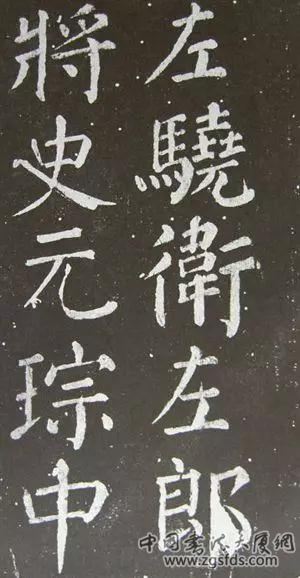 左驍衛左郎
將史元琮中
中国书法大厦网
www.zgsfds.com